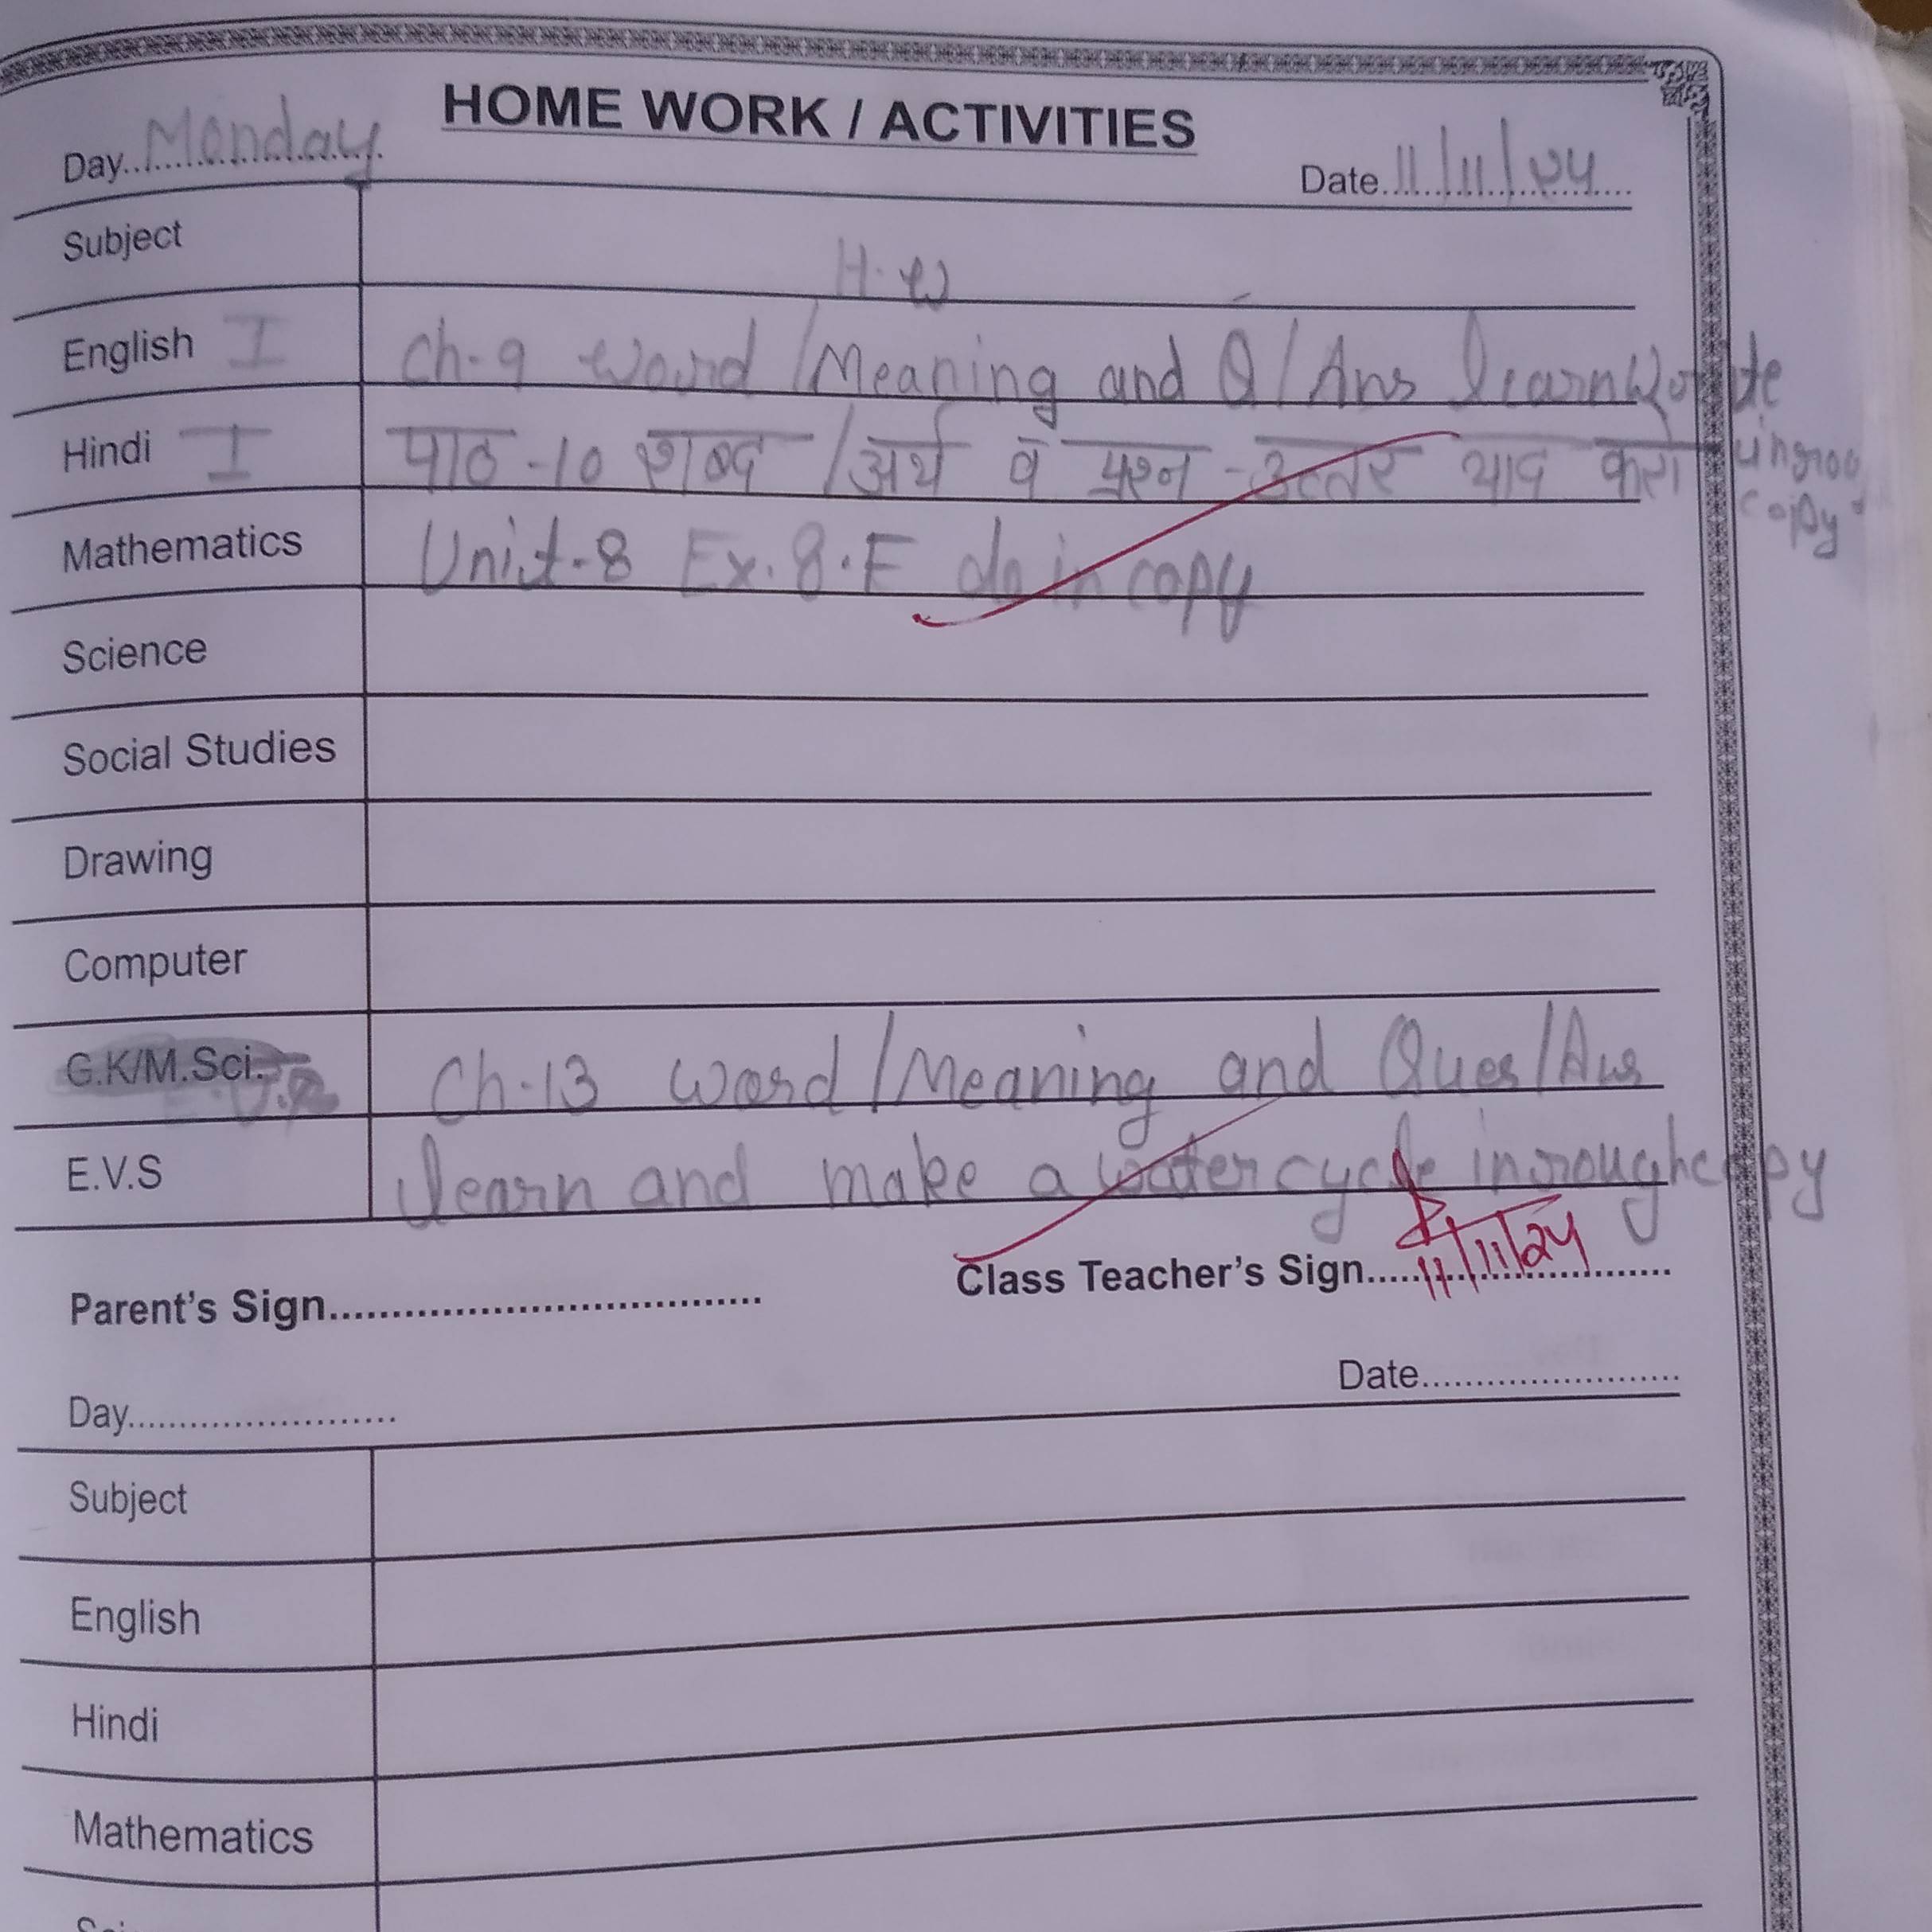 HOME WORK / ACTIVITIES
Day....Monday.... Date....11/11/24....
Subject H.W
English I Ch-9 Word/Meaning and Q/Ans learn Write
Hindi I पाठ-10 शब्द/अर्थ व प्रश्न-उत्तर याद करो in
copy
Mathematics Unit-8 Ex.8.F do in copy
Science
Social Studies
Drawing
Computer
G.K/M.Sci. Ch-13 word/Meaning and Ques/Ans
E.V.S learn and make a water cycle in rough copy
Parent's Sign.................................... Class Teacher's Sign.....11/11/24.....
Day........................ Date........................
Subject
English
Hindi
Mathematics